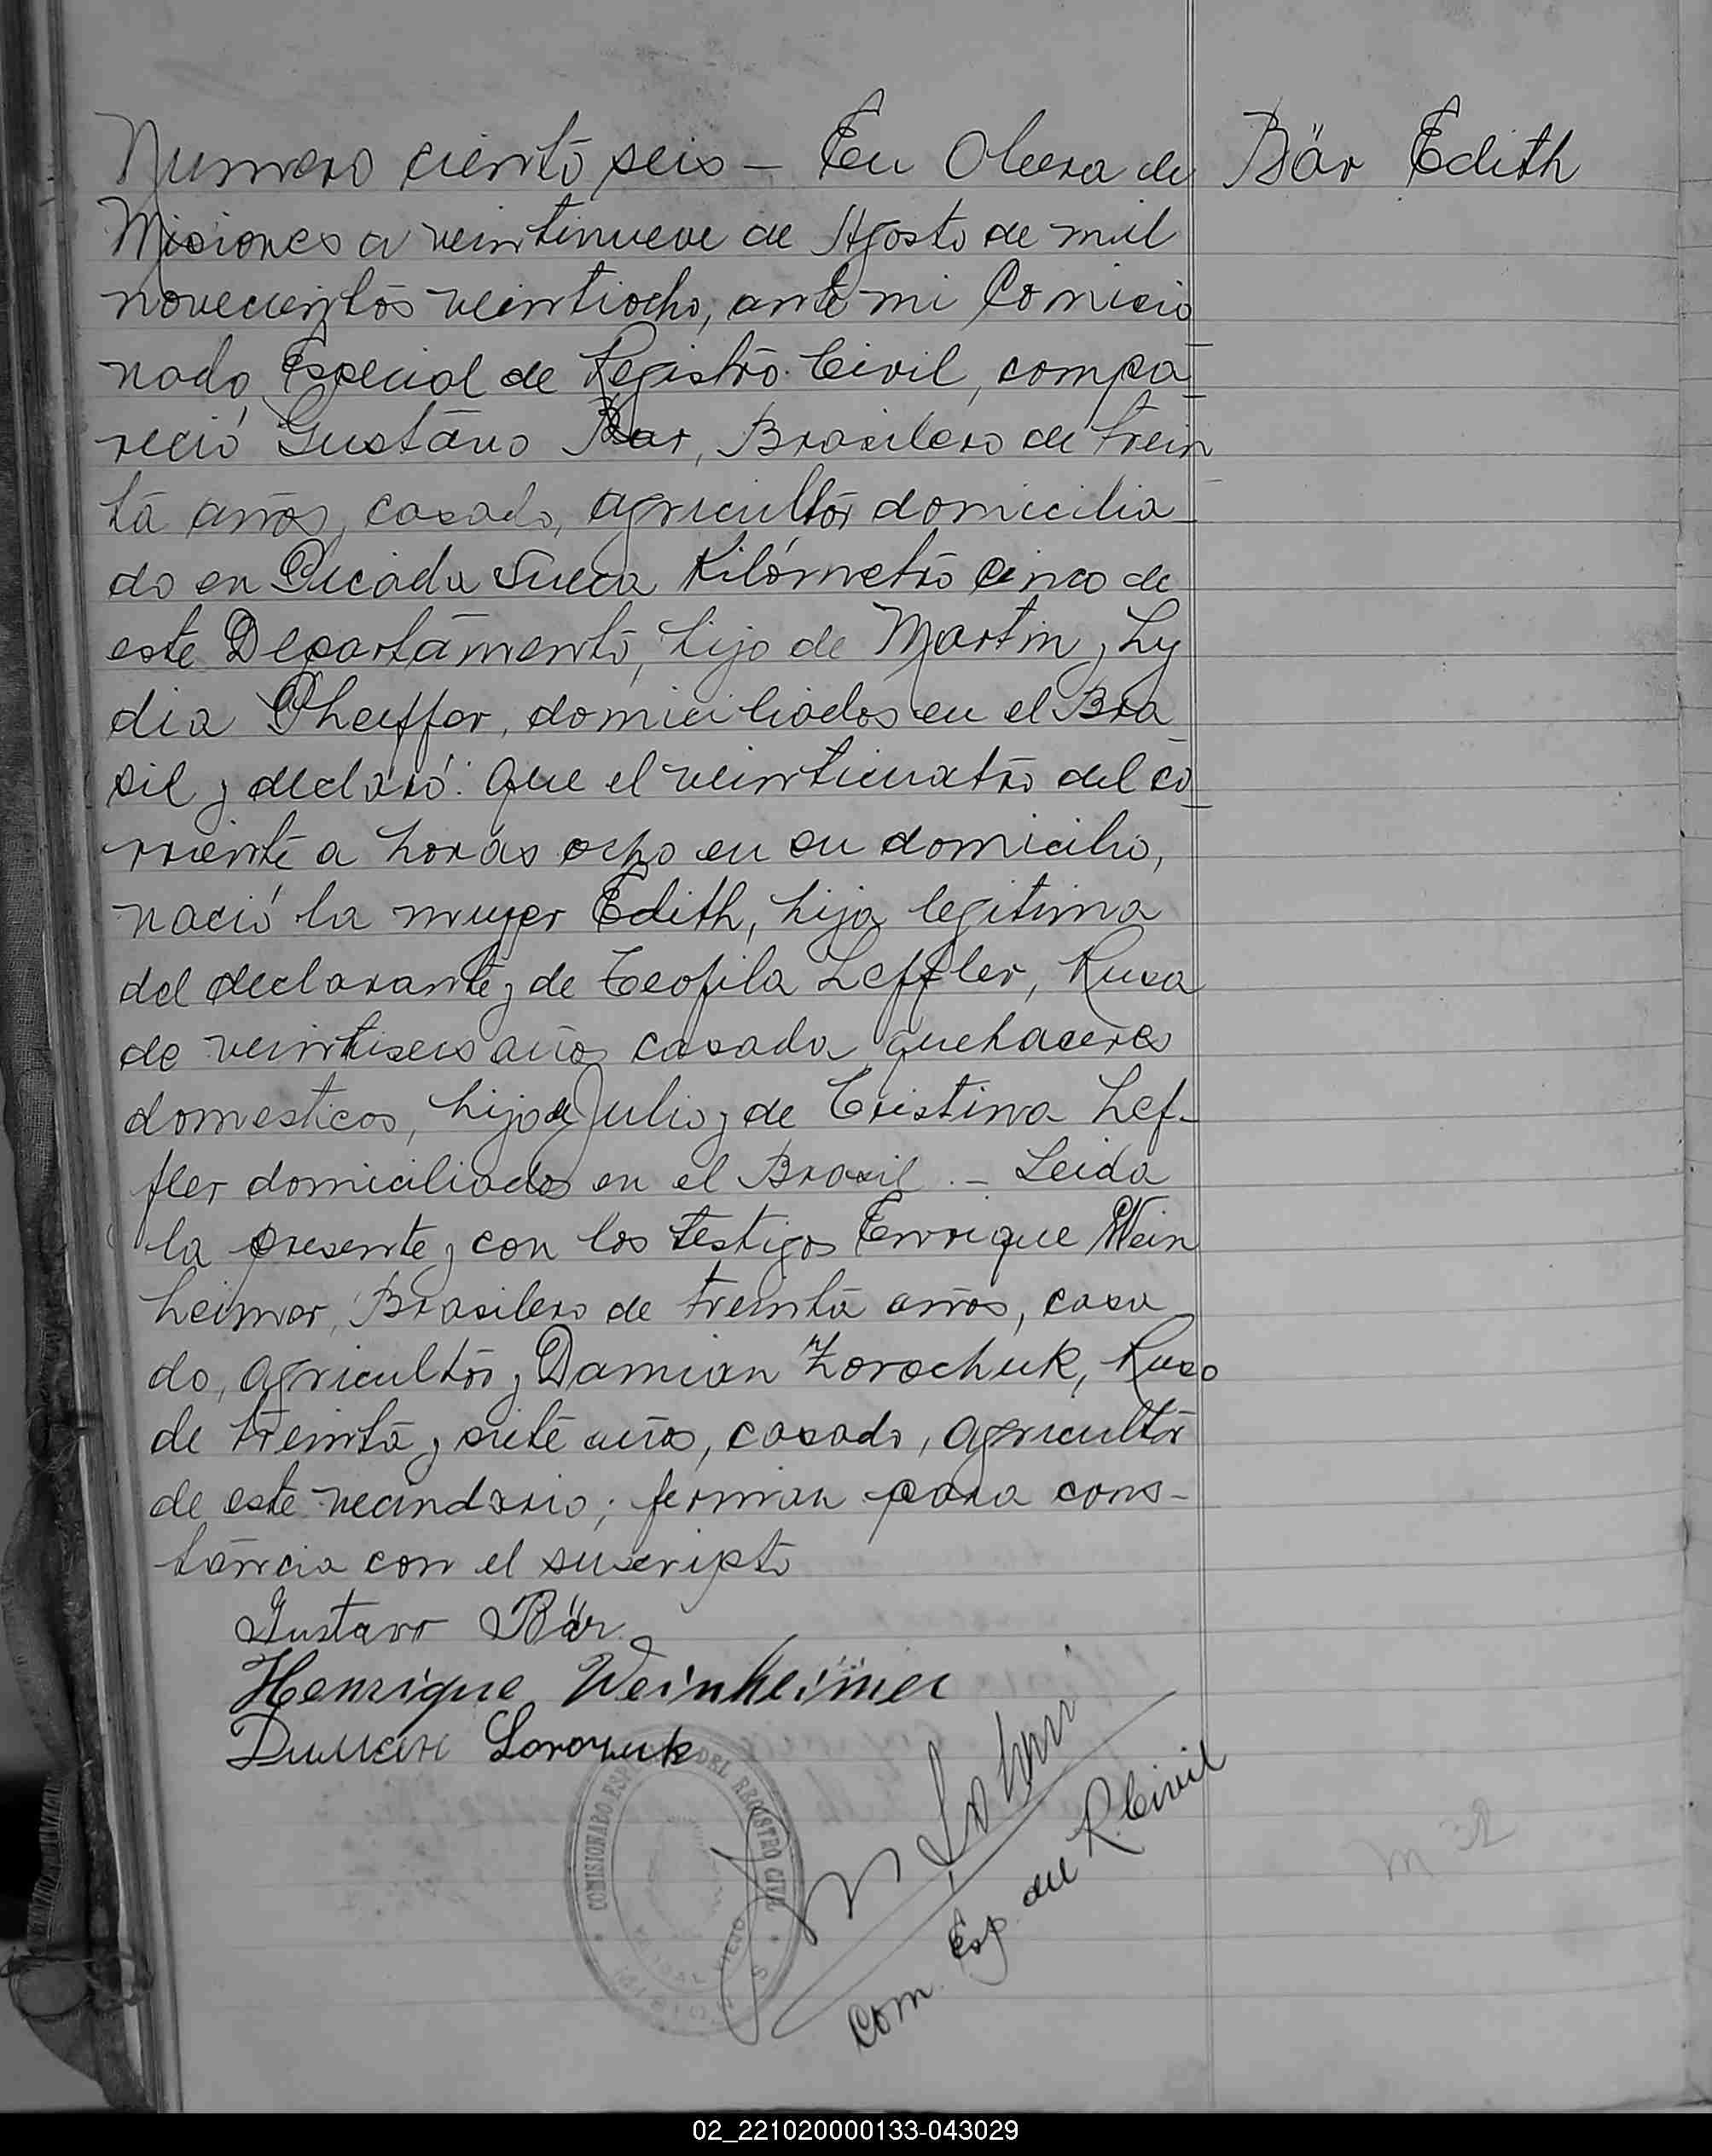 Numero ciento seis — En Obera de
Bär Edith
Misiones a veintinueve de Agosto de mil
novecientos veintiocho, ante mi Comisio
nado Especial de Registro Civil, compa_
reció Gustavo Bar, Brasilero de trein
ta años, casado, agricultor domicilia_
do en Picada Sueca Kilómetro cinco de
este Departamento, hijo de Martin y Ly
dia Pheiffer, domiciliados en el Bra_
sil y declaró: que el veinticuatro del co_
rriente a horas ocho en su domicilio,
nació la mujer Edith, hija legitima
del declarante y de Teofila Leffler, Rusa
de veintiseis años casada quehaceres
domesticos, hija de Julio y de Cristina Lef-
fler domiciliados en el Brasil. — Leida
la presente y con los testigos Enrique Wein
heimer, Brasilero de treinta años, casa_
do, agricultor y Damian Zorochuk, Ruso
de treinta y siete años, casado, agricultor
de este vecindario; firman para cons-
tancia con el suscripto
Gustavo Bär
Henrique Weinheimer
COMISIONADO ESPECIAL DEL REGISTRO CIVIL
MISIONES
Com. Esp de R. Civil
02_221020000133-043029